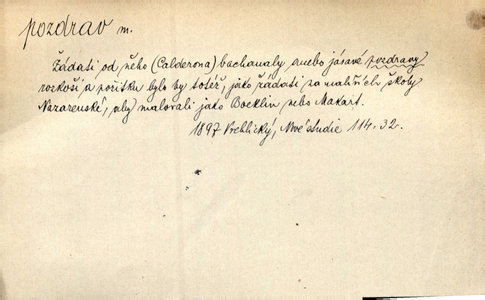 pozdrav m.
Žádati od něho (Calderona) bachanaly anebo jásavé pozdravy
rozkoši a požitku bylo by totéž, jako žádati na malířích školy
Nazarenské, aby malovali jako Boeklin nebo Makart.
1897 Vrchlický, Nové studie 114. 32.